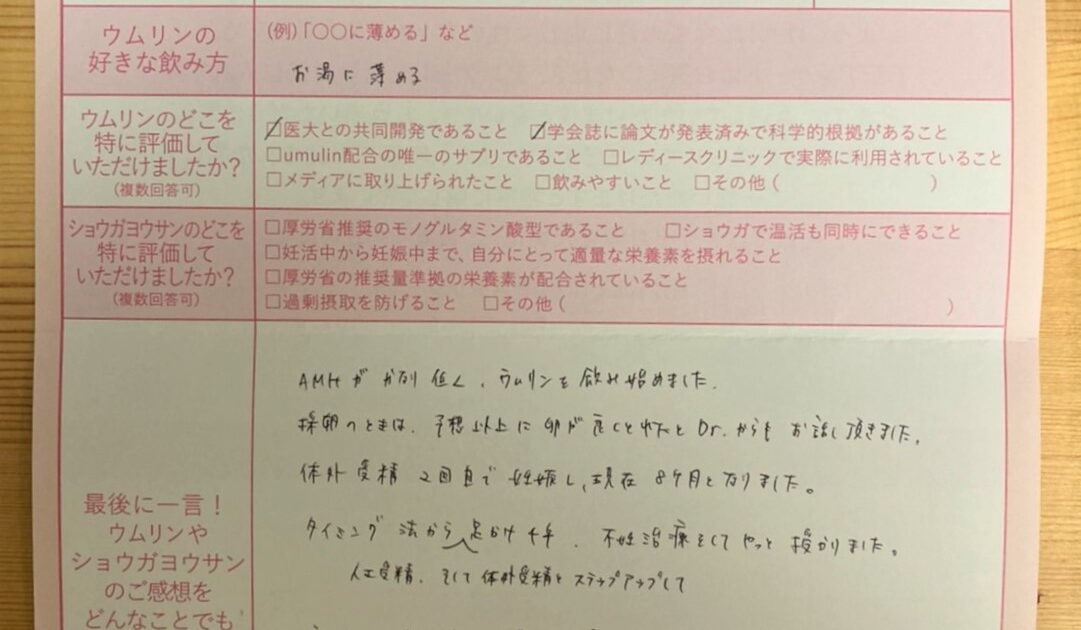 ウムリンの
好きな飲み方
(例)「〇〇に薄める」など
お湯に薄める
ウムリンのどこを
特に評価して
いただけましたか?
(複数回答可)
☑医大との共同開発であること ☑学会誌に論文が発表済みで科学的根拠があること
□umulin配合の唯一のサプリであること □レディースクリニックで実際に利用されていること
□メディアに取り上げられたこと □飲みやすいこと □その他( )
ショウガヨウサンのどこを
特に評価して
いただけましたか?
(複数回答可)
□厚労省推奨のモノグルタミン酸型であること □ショウガで温活も同時にできること
□妊活中から妊娠中まで、自分にとって適量な栄養素を摂れること
□厚労省の推奨量準拠の栄養素が配合されていること
□過剰摂取を防げること □その他( )
最後に一言!
ウムリンや
ショウガヨウサン
のご感想を
どんなことでも
AMHがかなり低く、ウムリンを飲み始めました。
採卵のときは、予想以上に卵が良くとれたとDr.からもお話し頂きました。
体外受精2回目で妊娠し、現在8ケ月となりました。
タイミング法から足かけ4年、不妊治療をしてやっと授かりました。
人工受精、そして体外受精とステップアップして